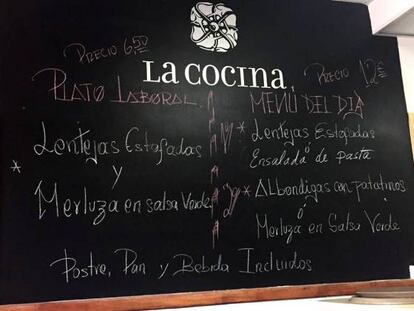 PRECIO 6,50
LA COCINA
PRECIO 12€
PLATO LABORAL
Lentejas Estofadas
y
* Merluza en salsa Verde
MENÚ DEL DIA
1º * Lentejas Estofadas
ó
Ensalada de pasta
2º * Albondigas con patatinas
ó
Merluza en Salsa Verde
Postre, Pan y Bebida Incluidos